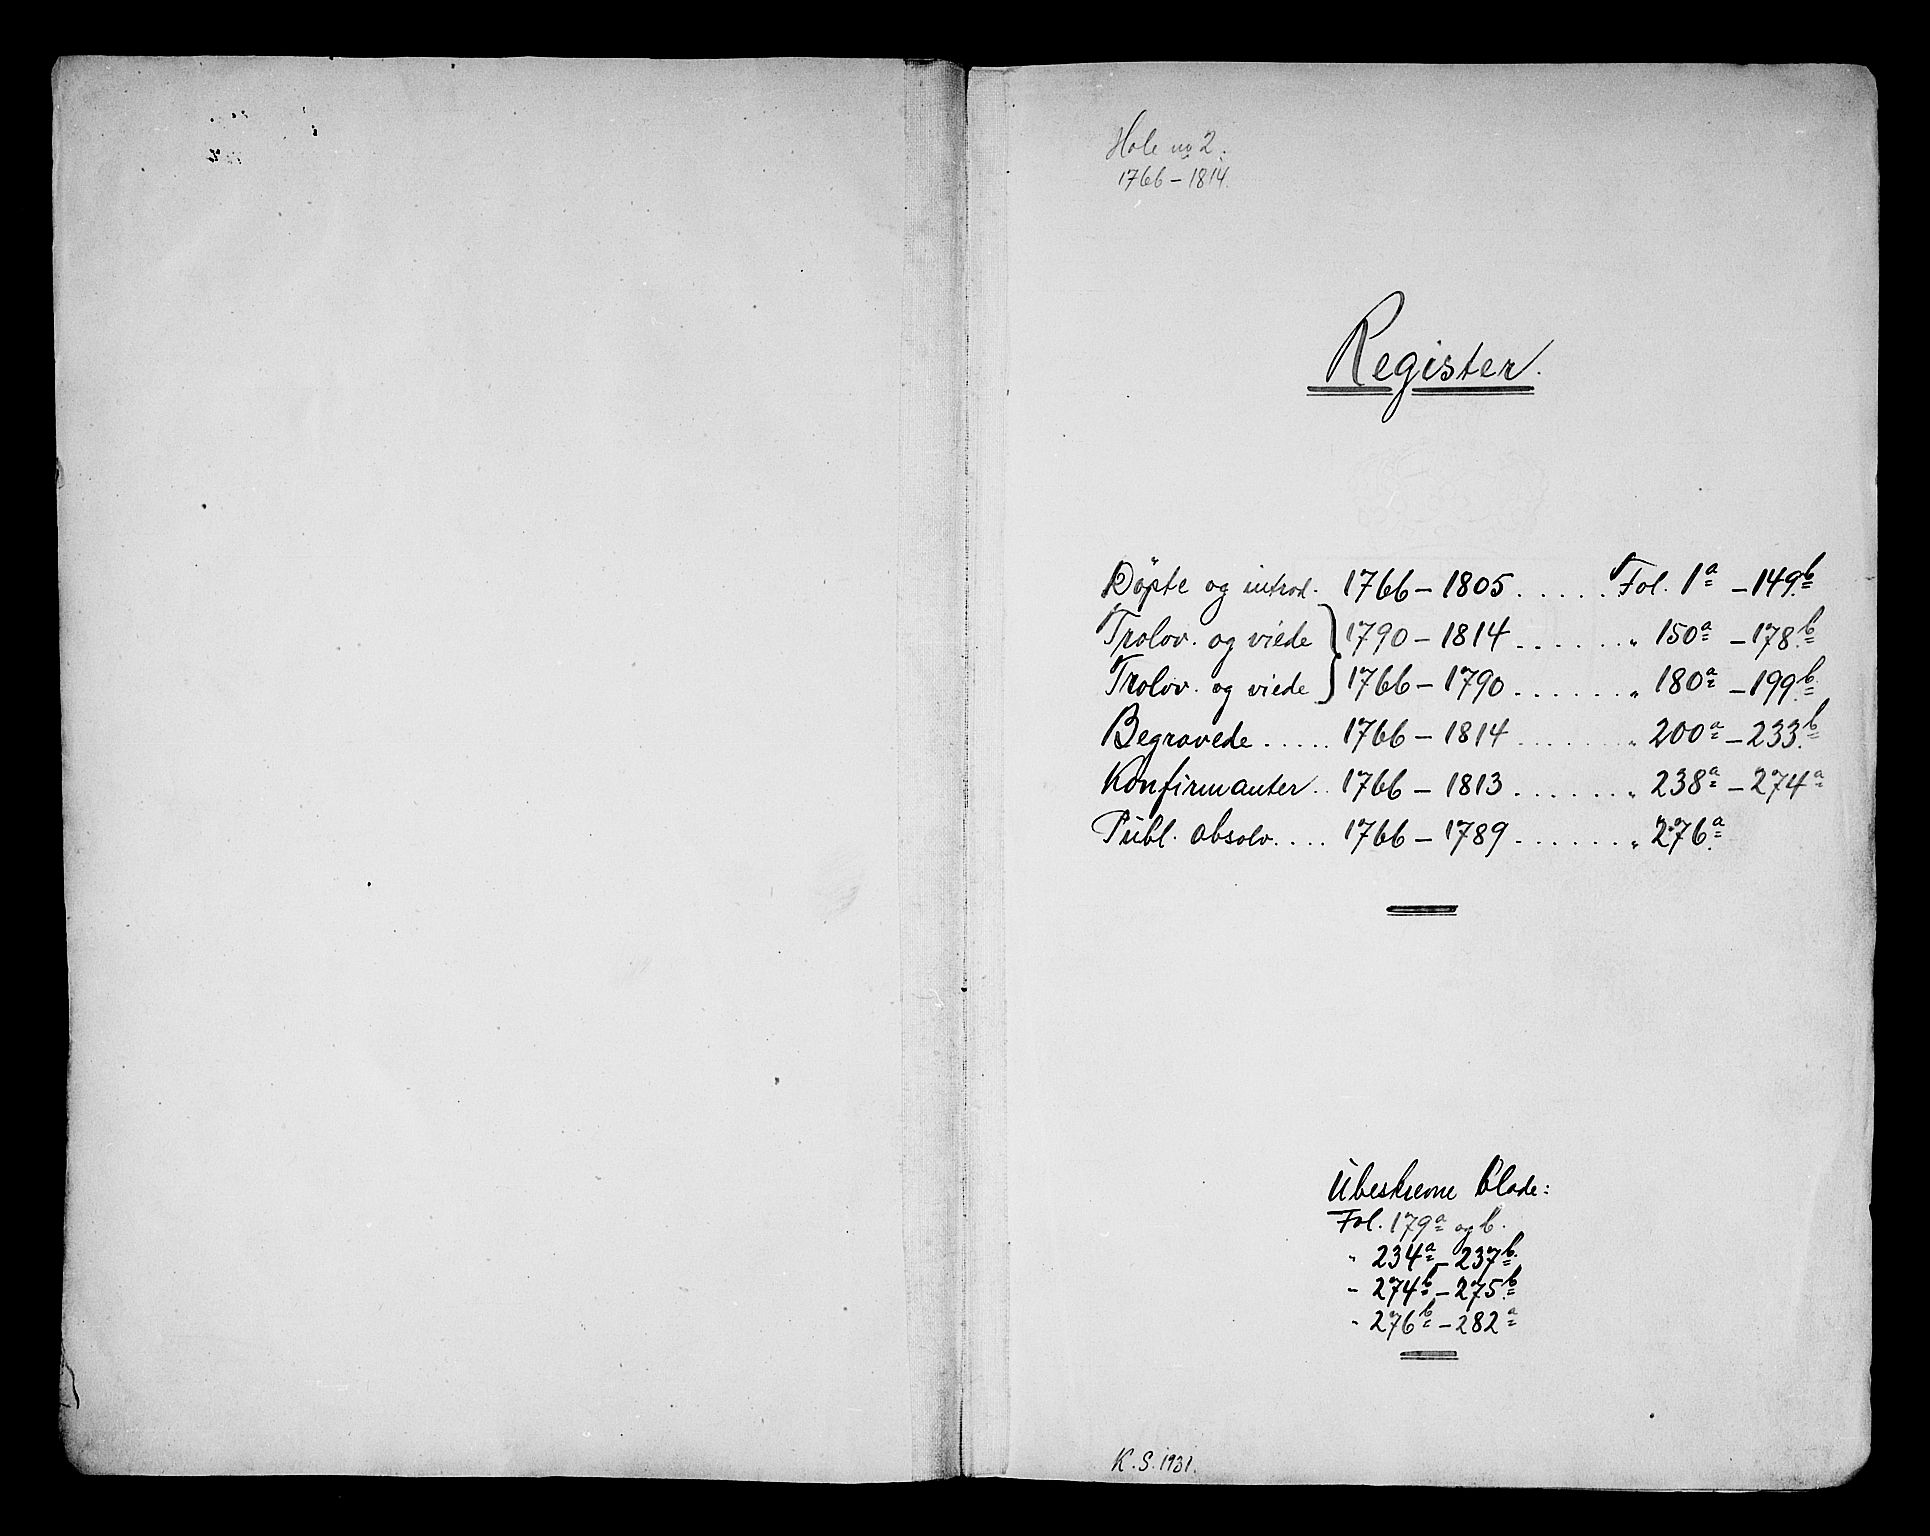 Hole no 2.
1766 – 1814.
Register.
Döpte og introd. 1766 – 1805 . . . . . Fol. 1a – 149b
Trolov. og viede } 1790 – 1814 . . . . . . „ 150a – 178b
Trolov. og viede } 1766 – 1790 . . . . . . „ 180a – 199b
Begravede . . . . . 1766 – 1814 . . . . . . „ 200a – 233b
Konfirmanter . . 1766 – 1813 . . . . . . „ 238a – 274a
Publ. absolv. . . . 1766 – 1789 . . . . . . „ 276a
Ubeskrevne blade:
Fol. 179a og b.
„ 234a – 237b
„ 274b – 275b
„ 276b – 282a
K. S. 1931.